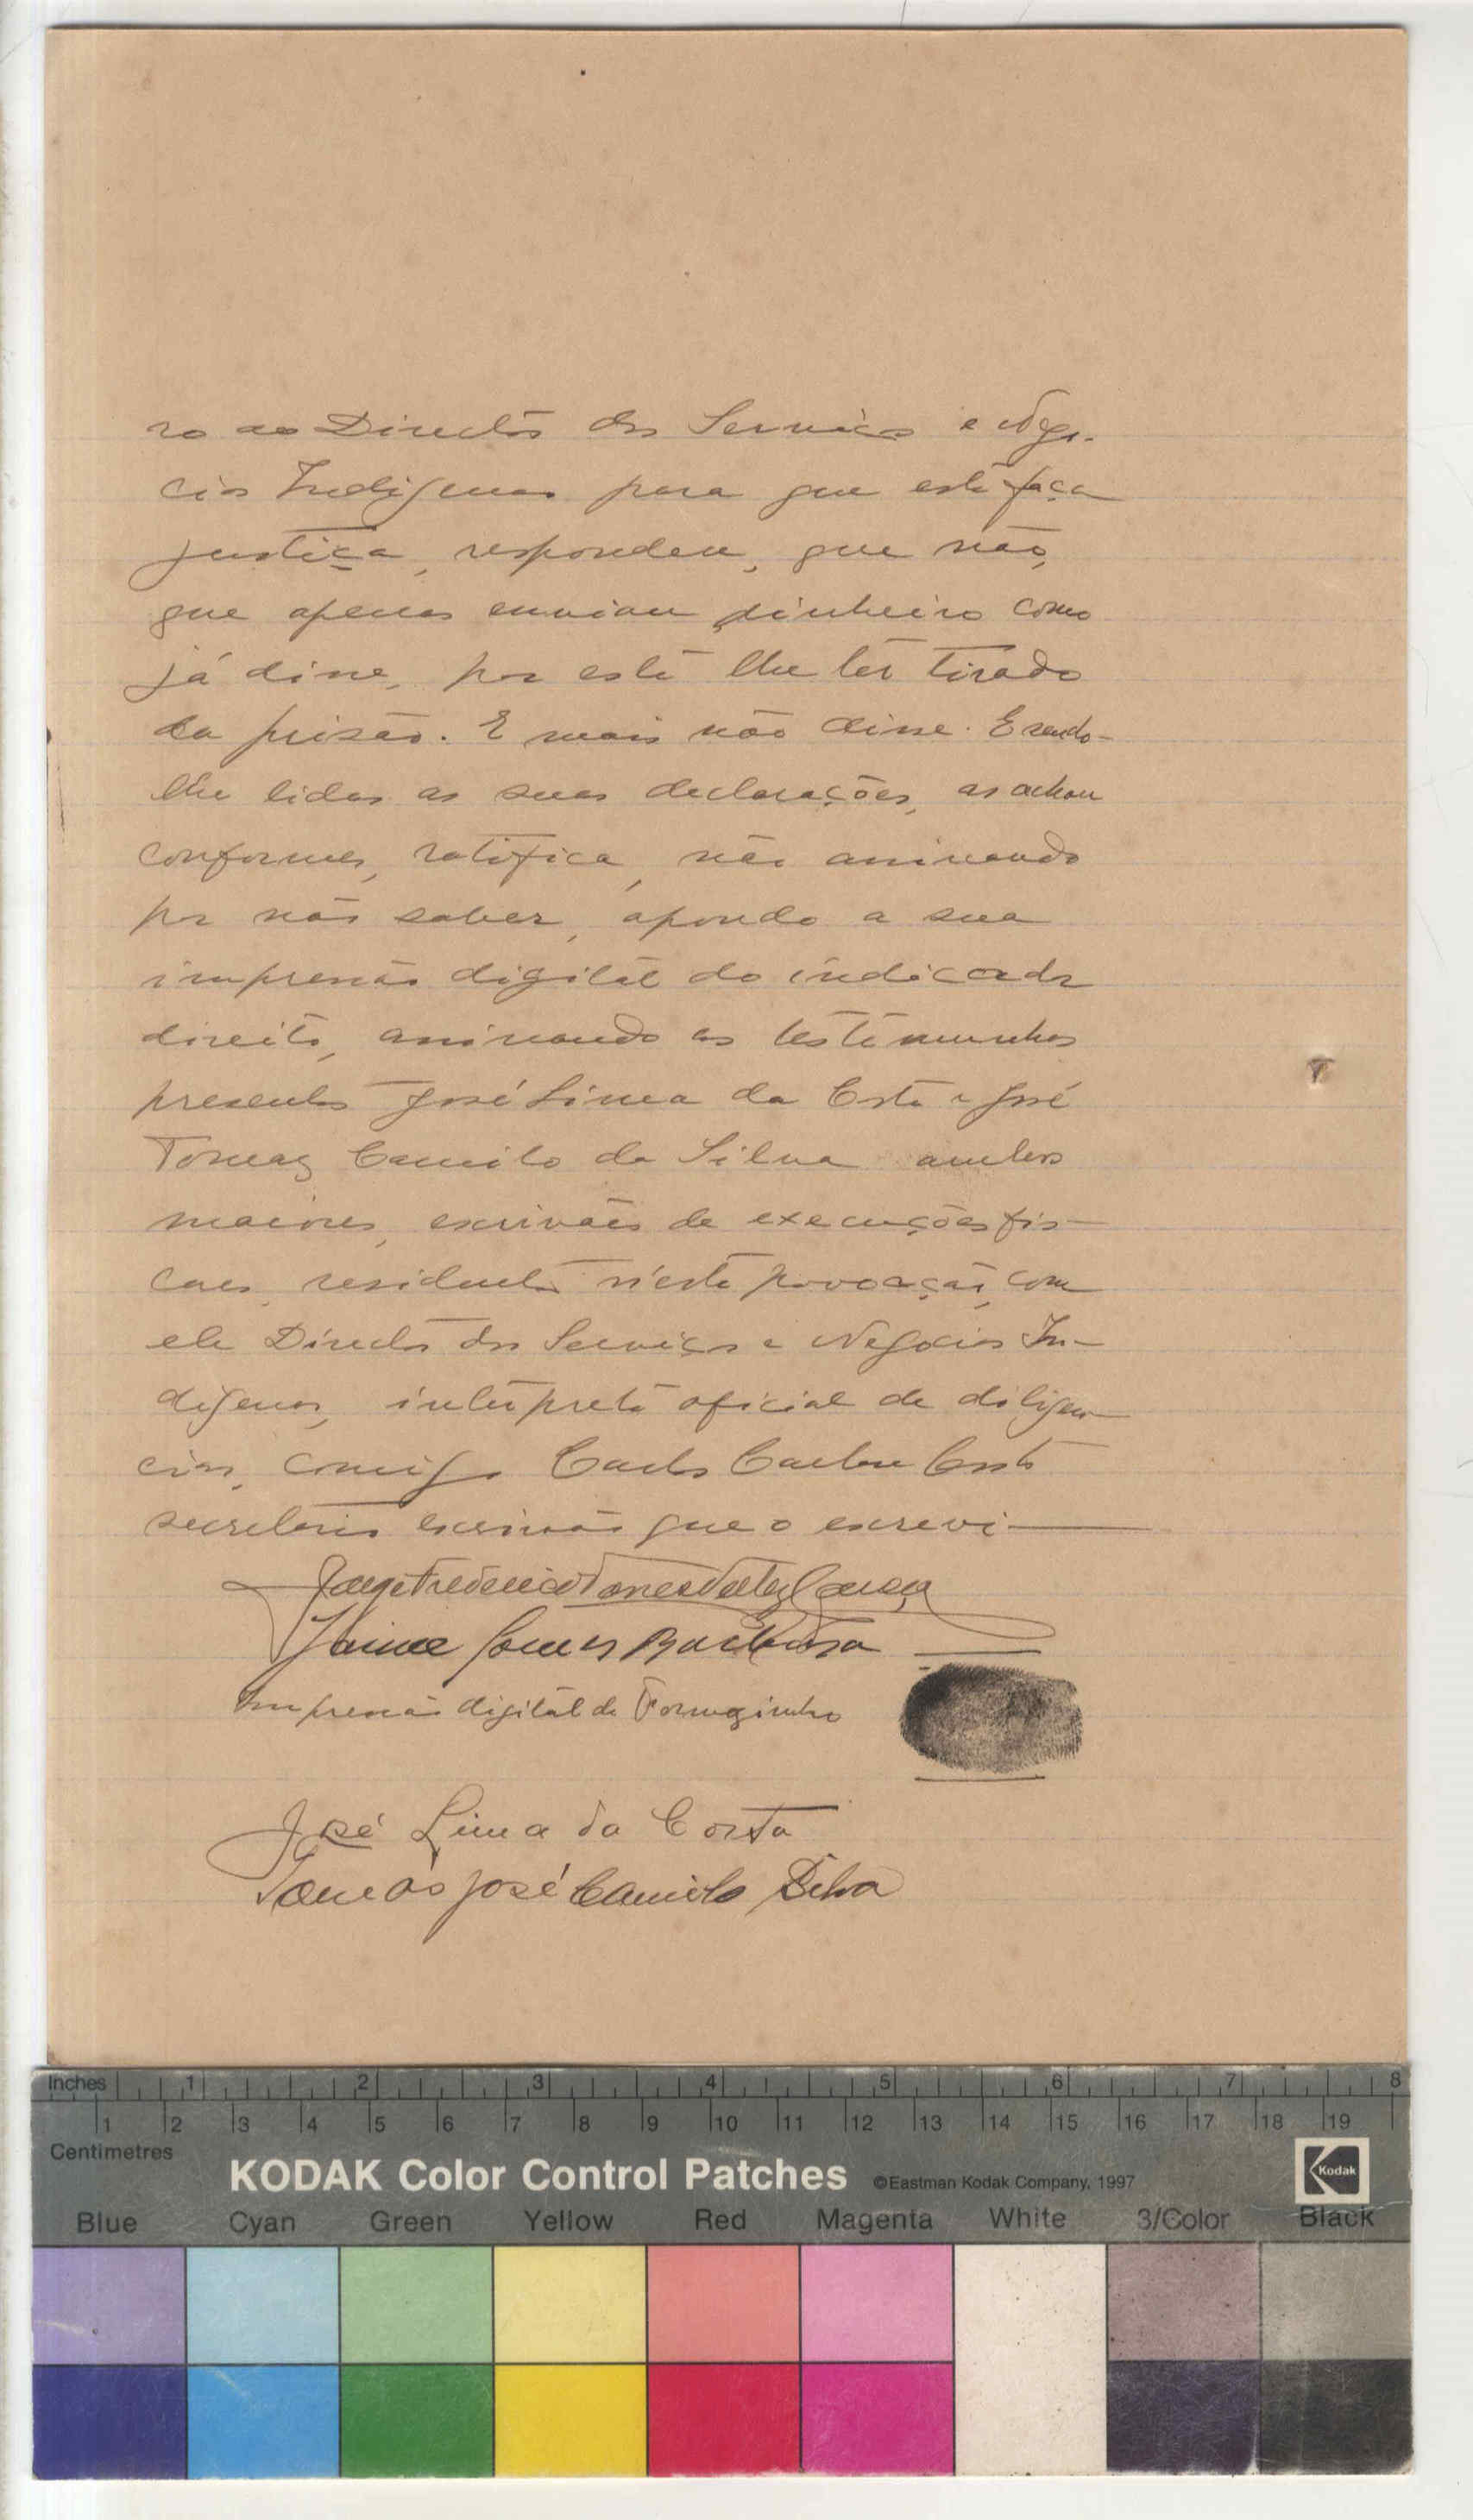 ro ao Director dos Serviços e Nego-
cios Indigenas para que este faça
justiça, respondeu, que não,
que apenas enviou dinheiro como
já disse, por este lhe ter tirado
da prisão. E mais não disse. E sendo-
lhe lidas as suas declarações, as achou
conformes, ratifica, não assinando
por não saber, apondo a sua
impressão digital do indicador
direito, assinando as testemunhas
presentes José Lima da Costa e José
Tomaz Camilo da Silva ambos
maiores, escrivães de execuções fis-
caes, residentes n'esta povoação, com
ele Director dos Serviços e Negocios In-
digenas, interprete oficial de diligen-
cias, comigo Carlos Costa
secretario escrivão que o escrevi
Jorge Frederico
Jaime Gomes Barbosa
Impressão digital de Tomazinho
José Lima da Costa
Tomás José Camilo Silva
Inches 1 2 3 4 5 6 7 8
1 2 3 4 5 6 7 8 9 10 11 12 13 14 15 16 17 18 19
Centimetres
KODAK Color Control Patches ©Eastman Kodak Company, 1997 Kodak
Blue Cyan Green Yellow Red Magenta White 3/Color Black